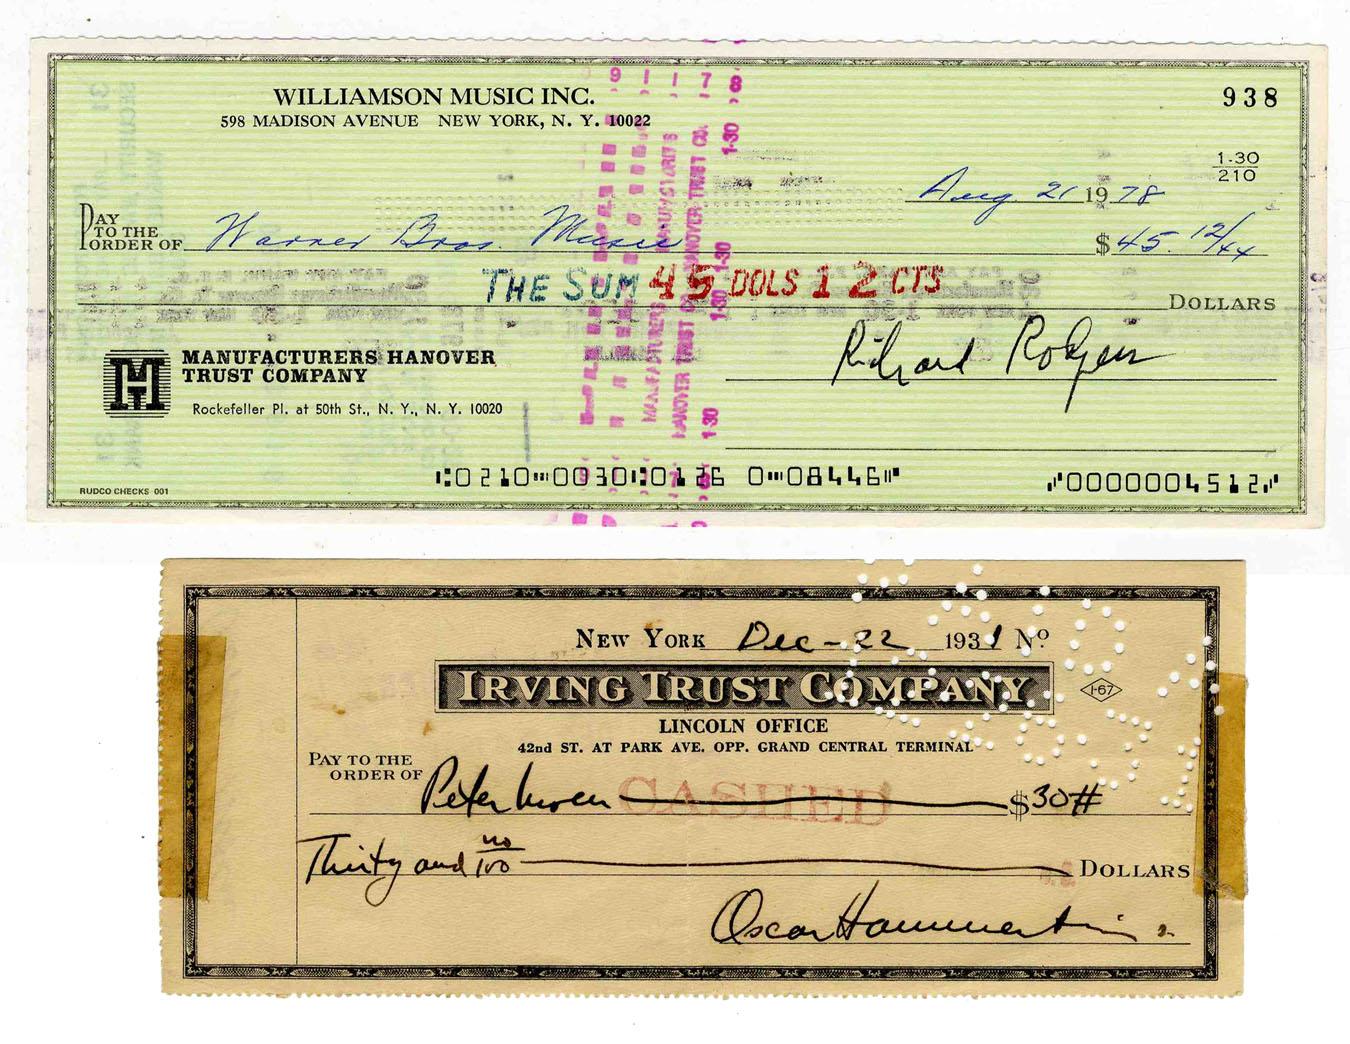 WILLIAMSON MUSIC INC.
598 MADISON AVENUE NEW YORK, N. Y. 10022
938
1-30
210
Aug 21 1978
PAY TO THE ORDER OF Warner Bros. Music $45. 12/xx
THE SUM 45 DOLS 12 CTS
DOLLARS
Richard Rodgers
MANUFACTURERS HANOVER
TRUST COMPANY
Rockefeller Pl. at 50th St., N. Y., N. Y. 10020
RUDCO CHECKS 001
0000004512
NEW YORK Dec-22 1931 No
IRVING TRUST COMPANY
1-67
LINCOLN OFFICE
42nd ST. AT PARK AVE. OPP. GRAND CENTRAL TERMINAL
PAY TO THE
ORDER OF Peter $30
CASHED
Thirty and no/100 DOLLARS
Oscar Hammerstein 2